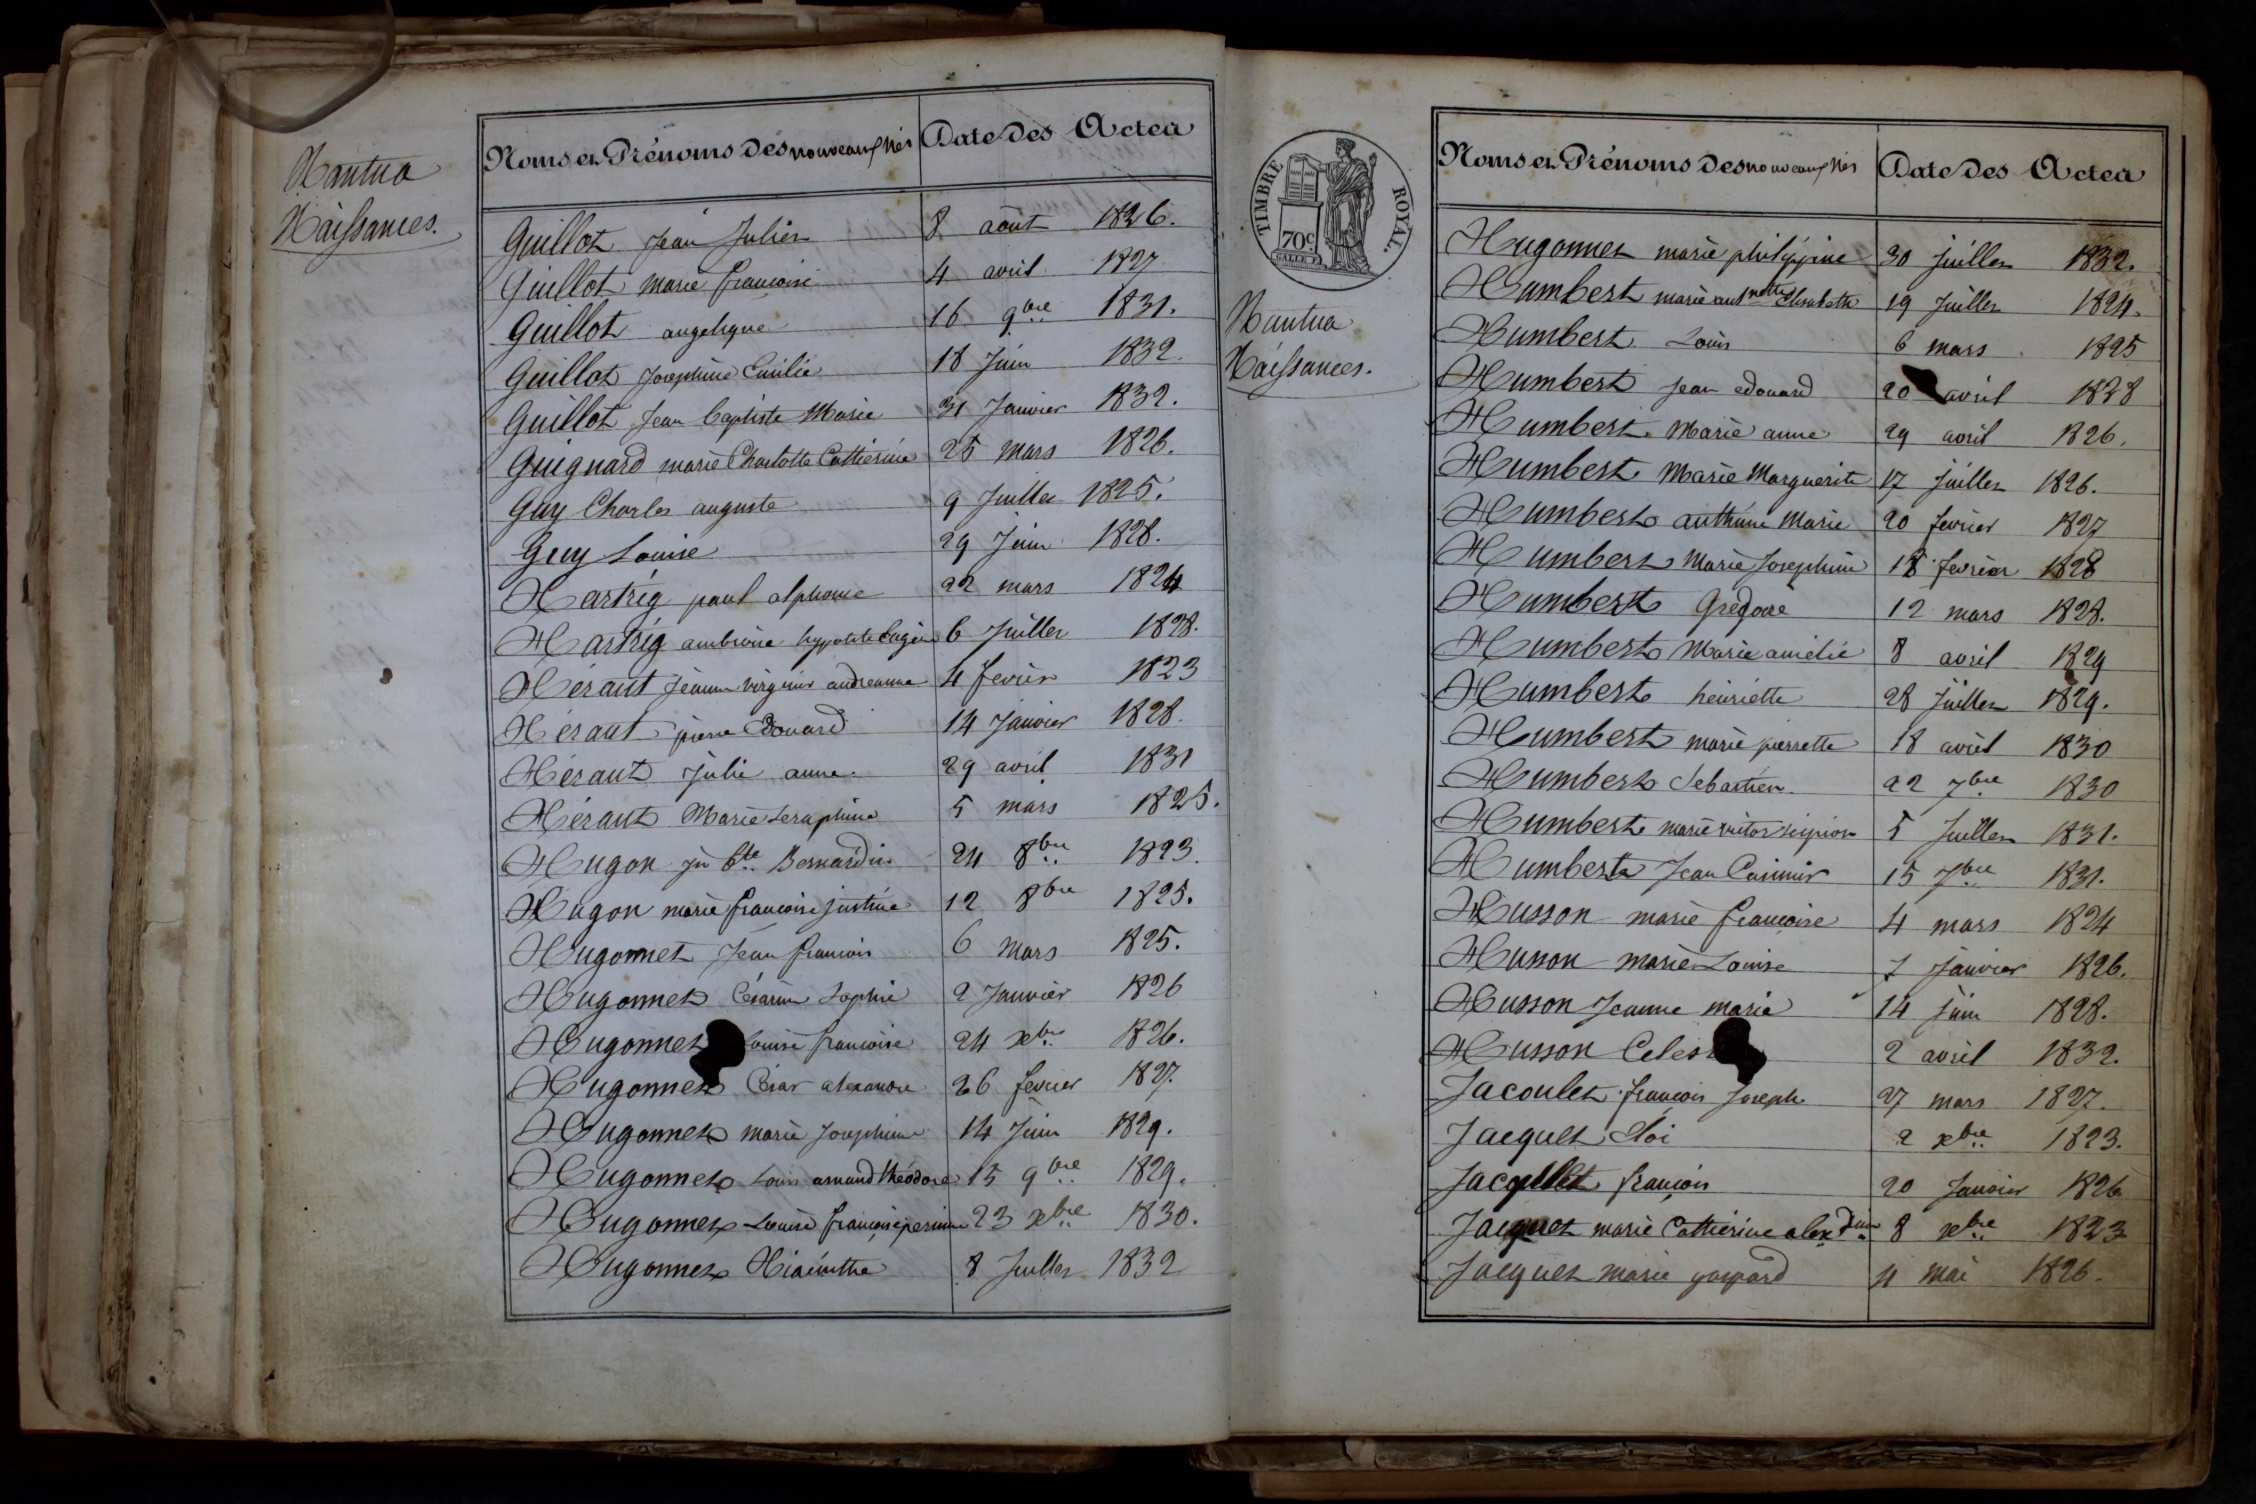 Nantua
Naissances.
Noms et Prénoms des nouveaux Nés Date des Actes
Guillot Jean Julien 8 août 1826.
Guillot marie françoise 4 avril 1827
Guillot angelique 16 9bre 1831.
Guillot Josephine Emilie 18 Juin 1832.
Guillot Jean baptiste Marie 31 Janvier 1832.
Guignard marie Charlotte Catherine 25 mars 1826.
Guy Charles auguste 9 Juillet 1825.
Guy Louise 29 Juin 1828.
Hartrig paul alphonse 22 mars 1824
Hartrig ambroise hyppolite Eugène 6 Juillet 1828.
Héraut Jeanne virginie andreanne 4 fevrier 1823
Héraut pierre Edouard 14 Janvier 1828.
Héraut Julie anne. 29 avril 1831
Héraut Marie Seraphine 5 mars 1825.
Hugon Jn Bte Bernardin 24 8bre 1823.
Hugon marie françoise justine 12 8bre 1825.
Hugonnet Jean françois 6 mars 1825.
Hugonnet Césarine Sophie 2 Janvier 1826
Hugonnet Louise françoise 24 xbre 1826.
Hugonnet César alexandre 26 fevrier 1827.
Hugonnet marie Josephine 14 Juin 1829.
Hugonnet Louis armand théodore 15 9bre 1829.
Hugonnet Louise françoise 23 xbre 1830.
Hugonnet Hiacinthe 8 Juillet 1832
TIMBRE ROYAL.
70c.
Nantua
Naissances.
Noms et Prénoms des nouveaux Nés Date des Actes
Hugonnet marie philippine 30 juillet 1832.
Humbert marie antnette Elisabeth 19 Juillet 1824.
Humbert Louis 6 mars 1825
Humbert Jean edouard 20 avril 1828
Humbert Marie anne 29 avril 1826.
Humbert Marie Marguerite 17 Juillet 1826.
Humbert anthême Marie 20 fevrier 1827
Humbert Marie Josephine 18 fevrier 1828
Humbert Grégoire 12 mars 1828.
Humbert Marie amélie 8 avril 1829
Humbert henriette 28 Juillet 1829.
Humbert marie pierrette 18 avril 1830
Humbert Sebastien 22 7bre 1830
Humbert marie victor scipion 5 Juillet 1831.
Humbert Jean Casimir 15 7bre 1831.
Husson marie françoise 4 mars 1824
Husson marie Louise 7 Janvier 1826.
Husson Jeanne marie 14 juin 1828.
Husson Celes 2 avril 1832.
Jacoulet françois Joseph 27 mars 1827.
Jacquet Eloi 2 xbre 1823.
Jacquet françois 20 Janvier 1826
Jacquet marie Catherine alexdrine 8 xbre 1823
Jacquet marie gaspard 4 mai 1826.